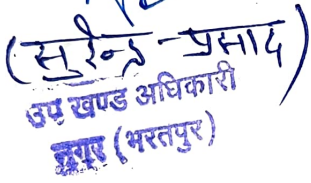 (सुरेन्द्र - प्रसाद)
उप खण्ड अधिकारी
(भरतपुर)